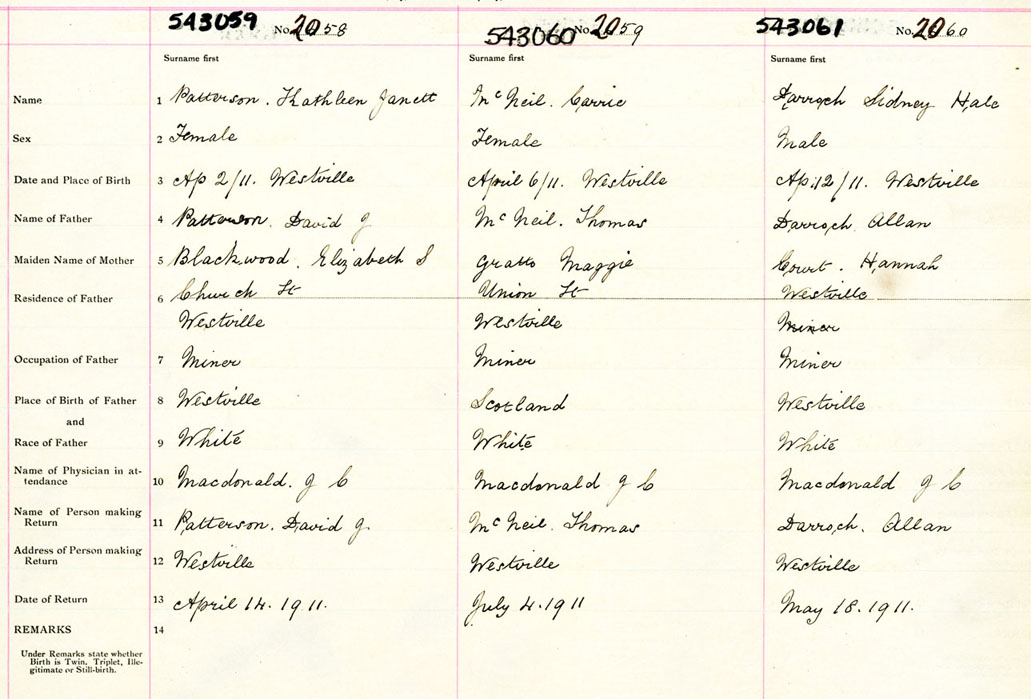 543059 No. 2058 543060 No. 2059 543061 No. 2060
Surname first Surname first Surname first
Name 1 Patterson. Kathleen Janett McNeil. Carrie Darroch Sidney Hale
Sex 2 Female Female Male
Date and Place of Birth 3 Ap 2/11. Westville April 6/11. Westville Apl 12/11. Westville
Name of Father 4 Patterson. David J McNeil. Thomas Darroch Allan
Maiden Name of Mother 5 Blackwood. Elizabeth S Gratto Maggie Court. Hannah
Residence of Father 6 Church St Union St Westville
Westville Westville Miner
Occupation of Father 7 Miner Miner Miner
Place of Birth of Father 8 Westville Scotland Westville
and
Race of Father 9 White White White
Name of Physician in at-
tendance 10 Macdonald. J C Macdonald J C Macdonald J C
Name of Person making
Return 11 Patterson. David J. McNeil. Thomas Darroch. Allan
Address of Person making
Return 12 Westville Westville Westville
Date of Return 13 April 14. 1911. July 4. 1911 May 18. 1911.
REMARKS 14
Under Remarks state whether
Birth is Twin, Triplet, Ille-
gitimate or Still-birth.